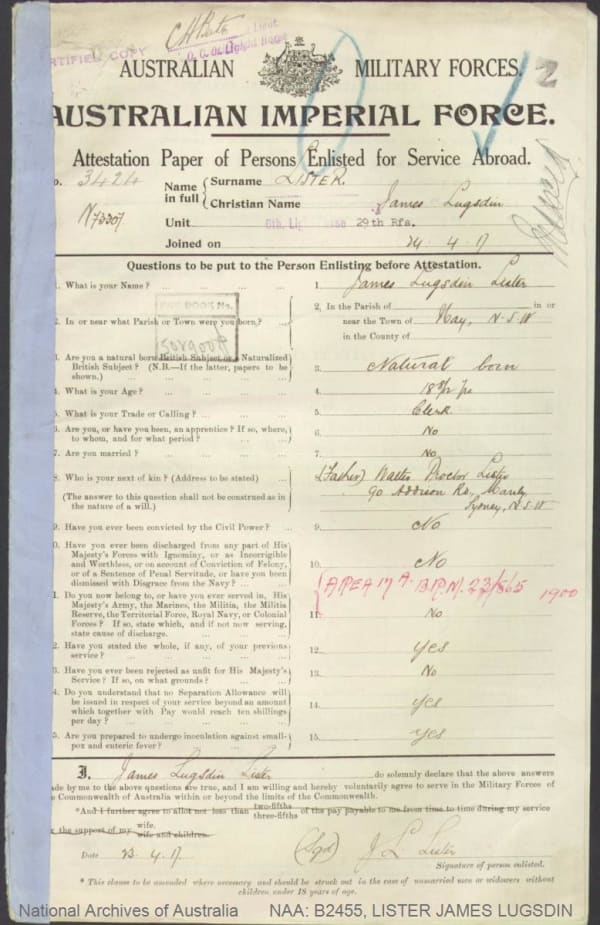 CERTIFIED COPY
Lieut.
AUSTRALIAN MILITARY FORCES.
2
AUSTRALIAN IMPERIAL FORCE.
Attestation Paper of Persons Enlisted for Service Abroad.
o. 3424
Name in full { Surname LISTER.
Christian Name James Lugsdin
N73307
Unit 29th Rfs.
Joined on 24. 4. 17
Questions to be put to the Person Enlisting before Attestation.
1. What is your Name? ... 1 James Lugsdin Lister
2. In or near what Parish or Town were you born? ... 2. In the Parish of in or
near the Town of Hay, N.S.W
in the County of
3. Are you a natural born British Subject or a Naturalized
British Subject? (N.B.—If the latter, papers to be
shown.) 3. Natural born
4. What is your Age? ... 4.
5. What is your Trade or Calling? ... 5. Clerk
6. Are you, or have you been, an apprentice? If so, where,
to whom, and for what period? 6. No
7. Are you married? ... 7. No
8. Who is your next of kin? (Address to be stated) ... 8. (Father) Walter Proctor Lister
90 Addison Rd, Manly
(The answer to this question shall not be construed as in
the nature of a will.) Sydney, N.S.W
9. Have you ever been convicted by the Civil Power? ... 9. No
10. Have you ever been discharged from any part of His
Majesty's Forces with Ignominy, or as Incorrigible
and Worthless, or on account of Conviction of Felony,
or of a Sentence of Penal Servitude, or have you been
dismissed with Disgrace from the Navy? 10. No
AREA 17 A.
1900
11. Do you now belong to, or have you ever served in, His
Majesty's Army, the Marines, the Militia, the Militia
Reserve, the Territorial Force, Royal Navy, or Colonial
Forces? If so, state which, and if not now serving,
state cause of discharge. 11. No
12. Have you stated the whole, if any, of your previous
service? 12. yes
13. Have you ever been rejected as unfit for His Majesty's
Service? If so, on what grounds? 13. No
14. Do you understand that no Separation Allowance will
be issued in respect of your service beyond an amount
which together with Pay would reach ten shillings
per day? 14. yes
15. Are you prepared to undergo inoculation against small-
pox and enteric fever? 15. yes
I, James Lugsdin Lister do solemnly declare that the above answers
made by me to the above questions are true, and I am willing and hereby voluntarily agree to serve in the Military Forces of
the Commonwealth of Australia within or beyond the limits of the Commonwealth.
*And I further agree to allot not less than two-fifths three-fifths of the pay payable to me from time to time during my service
for the support of my wife. wife and children.
Date 23. 4. 17. (Sgd) J L Lister
Signature of person enlisted.
* This clause to be amended where necessary and should be struck out in the case of unmarried men or widowers without
children under 18 years of age.
National Archives of Australia NAA: B2455, LISTER JAMES LUGSDIN